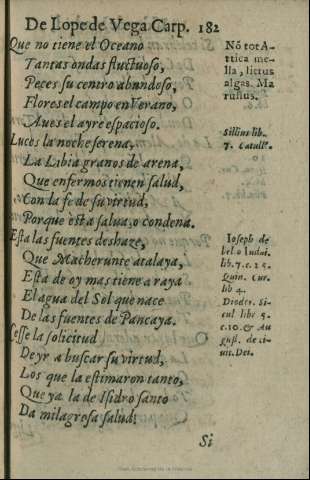 De Lope de Vega Carp. 182
Que no tiene el Oceano
Tantas ondas fluctuoso,
Peces su centro abundoso,
Flores el campo en Verano,
Aues el ayre espacioso.
Luces la noche serena,
La Libia granos de arena,
Que enfermos tienen salud,
Con la fe de su virtud,
Porque esta salua, o condena.
Esta las fuentes deshaze,
Que Macherunte atalaya,
Esta de oy mas tiene a raya
El agua del Sol que nace
De las fuentes de Pancaya.
Cesse la solicitud
De yr a buscar su virtud,
Los que la estimaron tanto,
Que ya la de Isidro santo
Da milagrosa salud.
Si
Nō tot A-
ttica me-
lla, lictus
algas. Ma
rullus.
Sillius lib.
7. Catull.
Ioseph de
belo Iudai.
lib. 7. c. 25.
Quin. Cur.
lib 4.
Diodor. Si-
cul libr 5.
c. 10. & Au
gust. de ci-
uit. Dei.